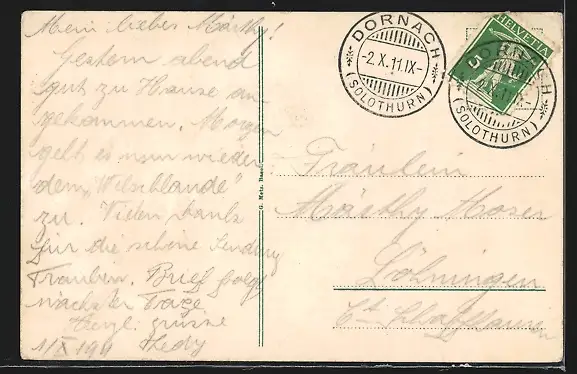 Mein liebes Märthy!
Gestern abend
gut zu Hause an-
gekommen. Morgen
geht es nun wieder
dem "Welschlande"
zu. Vielen Dank
für die schöne Sendung
Trauben. Brief folgt
nächster Tage
Herzl. grüsse
1/X 1911 Hedy
G. Metz, Basel
DORNACH
-2.X.11.IX-
(SOLOTHURN)
HELVETIA
5
DORNACH
(SOLOTHURN)
Fräulein
Märthy Moser
Löhningen
Ct. Schaffhausen